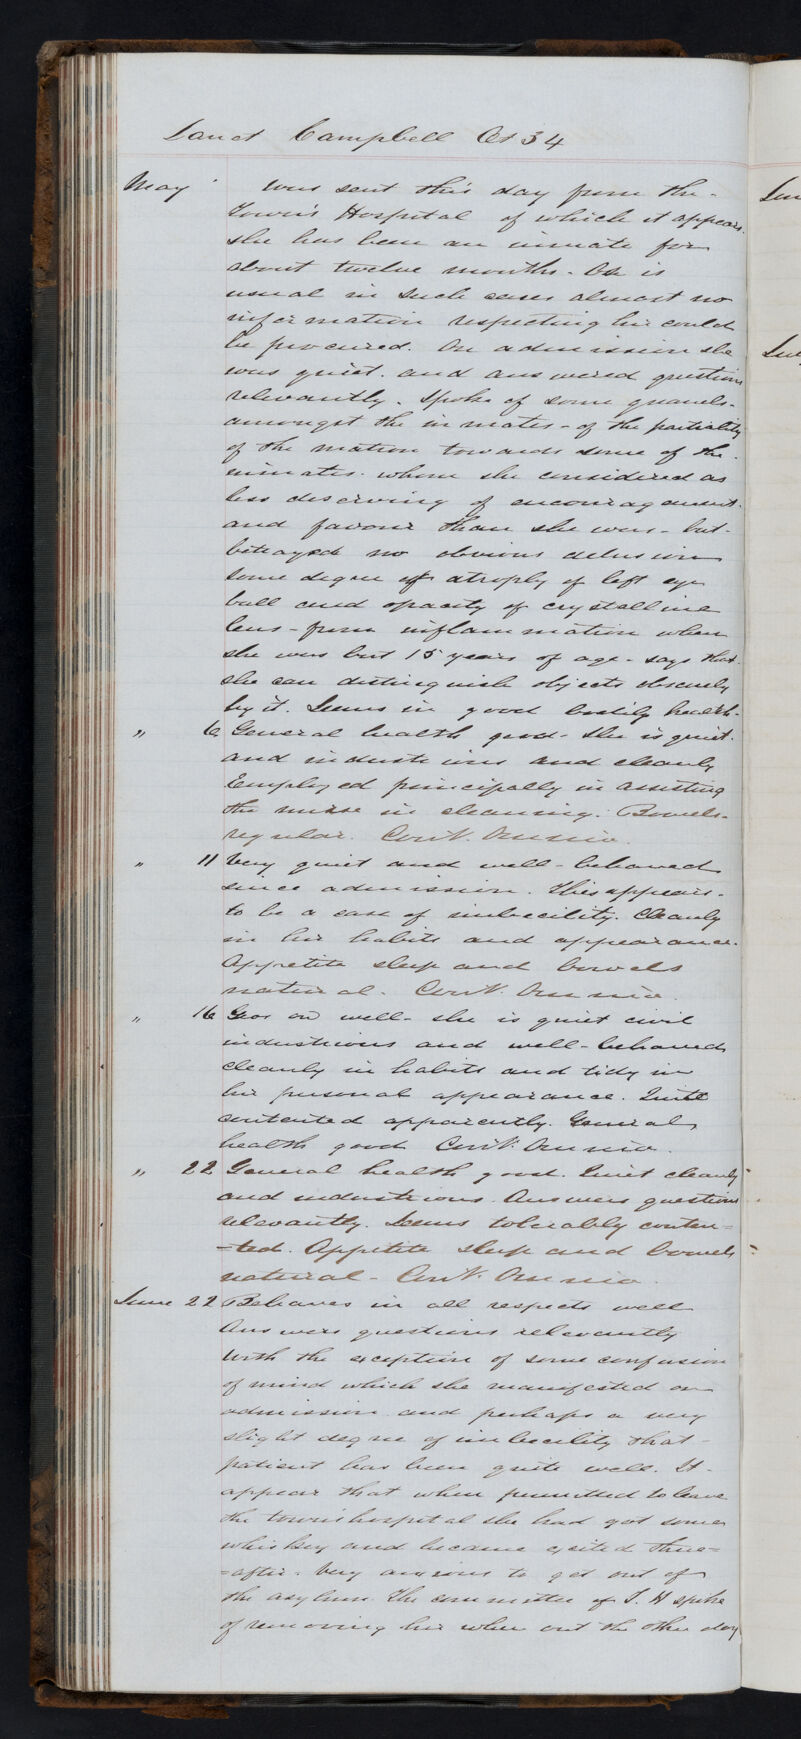 Janet Campbell Aet 34
May Was sent this day from the
Town's Hospital of which it appears
she has been an inmate for
about twelve months - As is
usual in such cases almost no
information respecting her could
be procured. On admission she
was quiet. and answered questions
relevantly. Spoke of some quarrels -
amongst the inmates - of the partiality
of the matron towards some of the
inmates. whom she considered as
less deserving of encouragement
and favour than she was - but -
betrayed no obvious delusion
Some degree of atrophy of left eye
ball and opacity of crystalline
lens - from inflammation when
she was but 15 years of age - says that
she can distinguish objects obscurely
by it. Seems in good bodily health -
" 6 General health good - She is quiet
and industrious and cleanly
Employed principally in assisting
the nurse in cleaning. Bowels -
regular. Contr. Omnia.
" 11 Very quiet and well-behaved
since admission. This appears -
to be a case of imbecility. Cleanly
in her habits and appearance.
Appetite sleep and bowels
natural. Contr. Omnia.
" 16 Goes on well - she is quiet civil
industrious and well-behaved
cleanly in habits and tidy in
her personal appearance. Quite
contented apparently. General
health good Contr. Omnia.
" 22 General health good. Quiet cleanly
and industrious. Answers questions
relevantly. Seems tolerably conten=
=ted. Appetite sleep and bowels
natural - Contr. Omnia.
June 22 Behaves in all respects well
Answers questions relevantly
With the exception of some confusion
of mind which she manifested on
admission and perhaps a very
slight degree of imbecility that
patient has been quite well. It
appears that when permitted to leave
the town's hospital she had got some
whiskey and became excited there=
=after. Very anxious to get out of
the asylum. The committee of T. H spoke
of removing her when out the other day